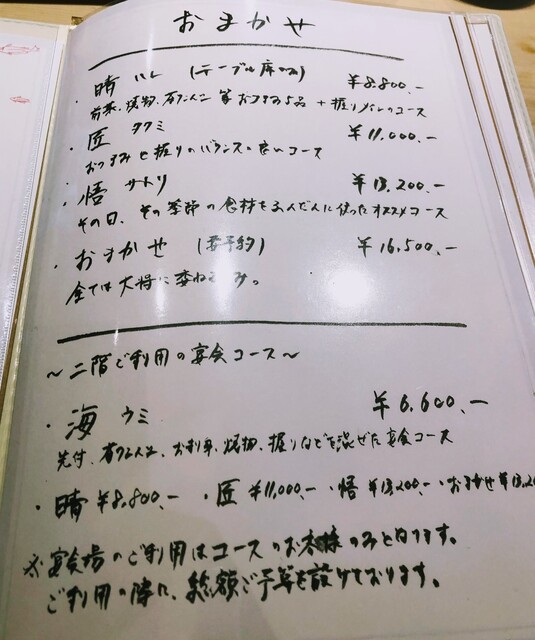 おまかせ
・晴 ハレ (テーブル席のみ) ¥8.800.-
前菜、焼物、茶ワンムシ 等おつまみ5品 + 握りメインのコース
・匠 タクミ ¥11,000.-
おつまみと握りのバランスの良いコース
・悟 サトリ ¥13,200.-
その日、その季節の食材をふんだんに使ったオススメコース
・おまかせ (要予約) ¥16,500.-
全ては大将に委ねるのみ。
〜二階ご利用の宴会コース〜
・海 ウミ ¥6.600.-
先付、茶ワンムシ、お刺身、焼物、握りなどを混ぜた宴会コース
・晴 ¥8,800.- ・匠 ¥11,000.- ・悟 ¥13,200.- ・おまかせ
※宴会場のご利用はコースのお客様のみと
ご利用の際に、総額ご予算を設けております。